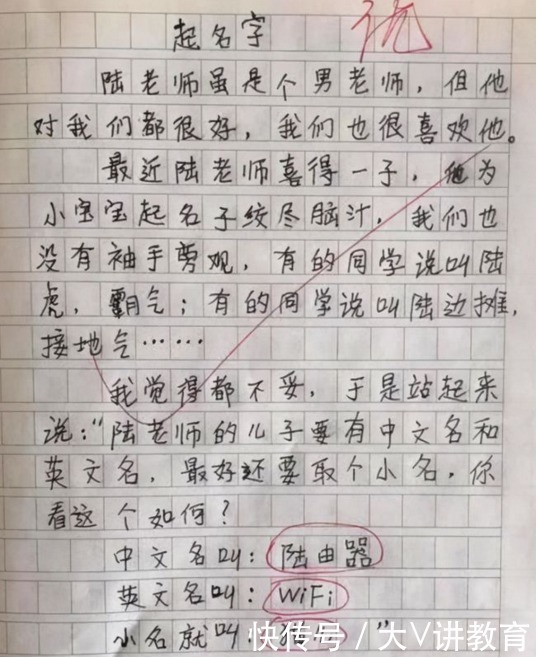 起名字
优
陆老师虽是个男老师，但他
对我们都很好，我们也很喜欢他。
最近陆老师喜得一子，他为
小宝宝起名子绞尽脑汁，我们也
没有袖手旁观，有的同学说叫陆
虎，霸气；有的同学说叫陆边摊，
接地气……
我觉得都不妥，于是站起来
说：“陆老师的儿子要有中文名和
英文名，最好还要取个小名，你
看这个如何？
中文名叫：陆由器
英文名叫：WiFi
小名就叫：
”
快传号 / 大V讲教育